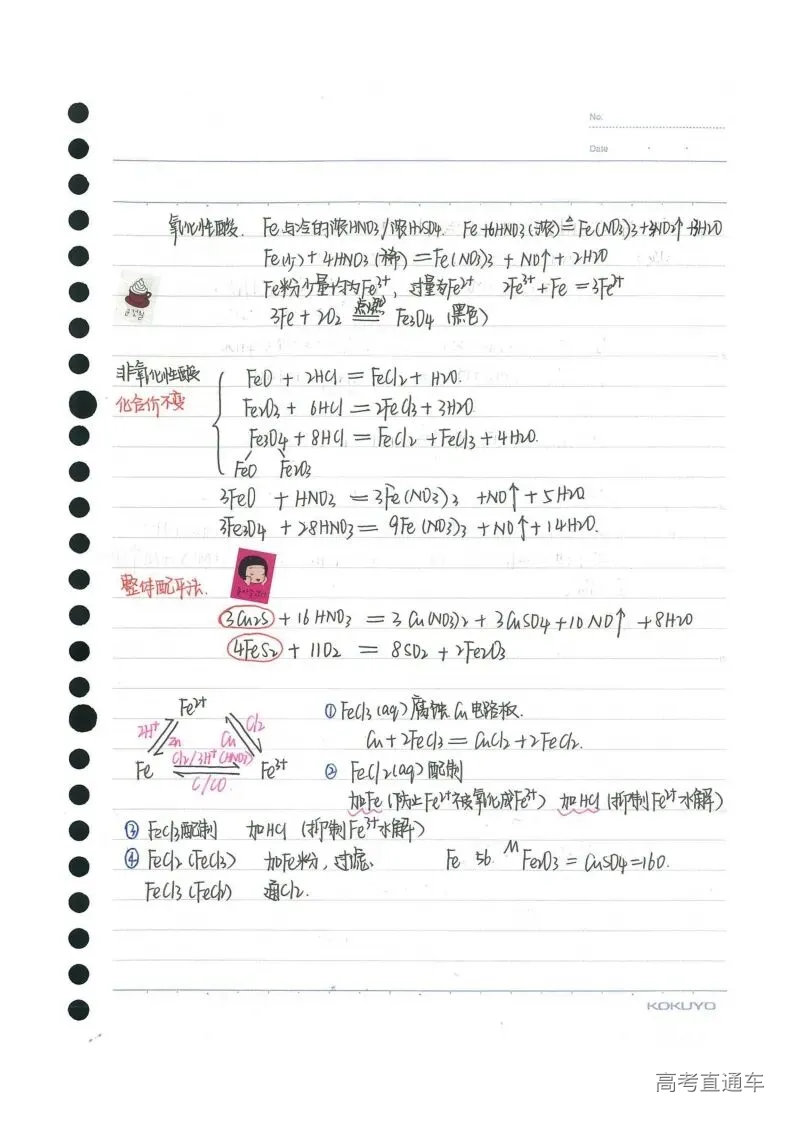 No.
Date
氧化性酸. Fe与冷的浓HNO3/浓H2SO4. Fe+6HNO3(浓)≜Fe(NO3)3+3NO2↑+3H2O
Fe(少)+4HNO3(稀)=Fe(NO3)3+NO↑+2H2O
Fe粉少量均为Fe³⁺, 过量为Fe²⁺ 2Fe³⁺+Fe=3Fe²⁺
点燃
3Fe+2O2 = Fe3O4 (黑色)
非氧化性酸 FeO + 2HCl = FeCl2 + H2O.
化合价不变 Fe2O3 + 6HCl = 2FeCl3 + 3H2O
Fe3O4 + 8HCl = FeCl2 + FeCl3 + 4H2O.
FeO Fe2O3
3FeO + HNO3 = 3Fe(NO3)3 + NO↑ + 5H2O
3Fe3O4 + 28HNO3 = 9Fe(NO3)3 + NO↑ + 14H2O.
整体配平法.
3Cu2S + 16HNO3 = 3Cu(NO3)2 + 3CuSO4 + 10NO↑ + 8H2O
4FeS2 + 11O2 = 8SO2 + 2Fe2O3
Fe²⁺ ① FeCl3(aq)腐蚀Cu电路板.
2H⁺ Zn Cu Cl2 Cu+2FeCl3=CuCl2+2FeCl2.
Cl2/3H⁺(HNO3)
Fe Fe³⁺ ② FeCl2(aq)配制
C/CO
加Fe(防止Fe²⁺被氧化成Fe³⁺) 加HCl(抑制Fe²⁺水解)
③ FeCl3配制 加HCl(抑制Fe³⁺水解)
④ FeCl2(FeCl3) 加Fe粉, 过滤. Fe 56 M Fe2O3=CuSO4=160.
FeCl3(FeCl2) 通Cl2.
KOKUYO
高考直通车